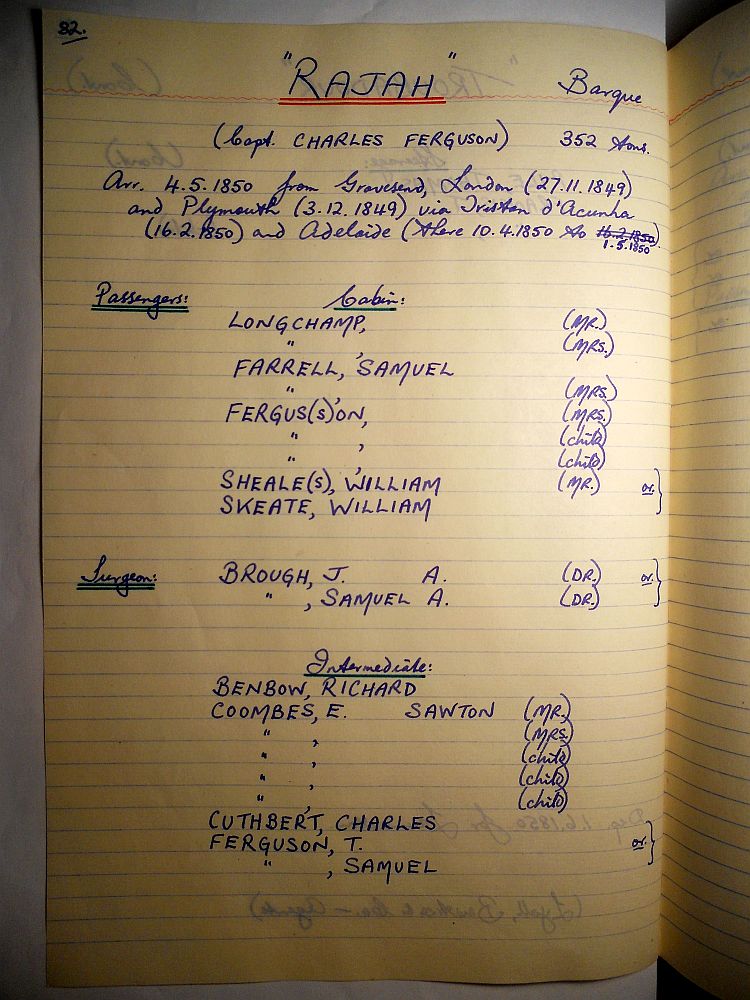 82.
"RAJAH" Barque
(Capt. CHARLES FERGUSON) 352 tons.
Arr. 4.5.1850 from Gravesend, London (27.11.1849)
and Plymouth (3.12.1849) via Tristan d'Acunha
(16.2.1850) and Adelaide (there 10.4.1850 to 16.2.1850)
1.5.1850
Passengers: Cabin:
LONGCHAMP, (MR.)
" , (MRS.)
FARRELL, SAMUEL
" , (MRS.)
FERGUS(s)ON, (MRS.)
" , (child)
" , (child)
SHEALE(s), WILLIAM (MR.) or. }
SKEATE, WILLIAM
Surgeon: BROUGH, J. A. (DR.) or. }
" , SAMUEL A. (DR.)
Intermediate:
BENBOW, RICHARD
COOMBES, E. SAWTON (MR.)
" , (MRS.)
" , (child)
" , (child)
" , (child)
CUTHBERT, CHARLES
FERGUSON, T. or. }
" , SAMUEL